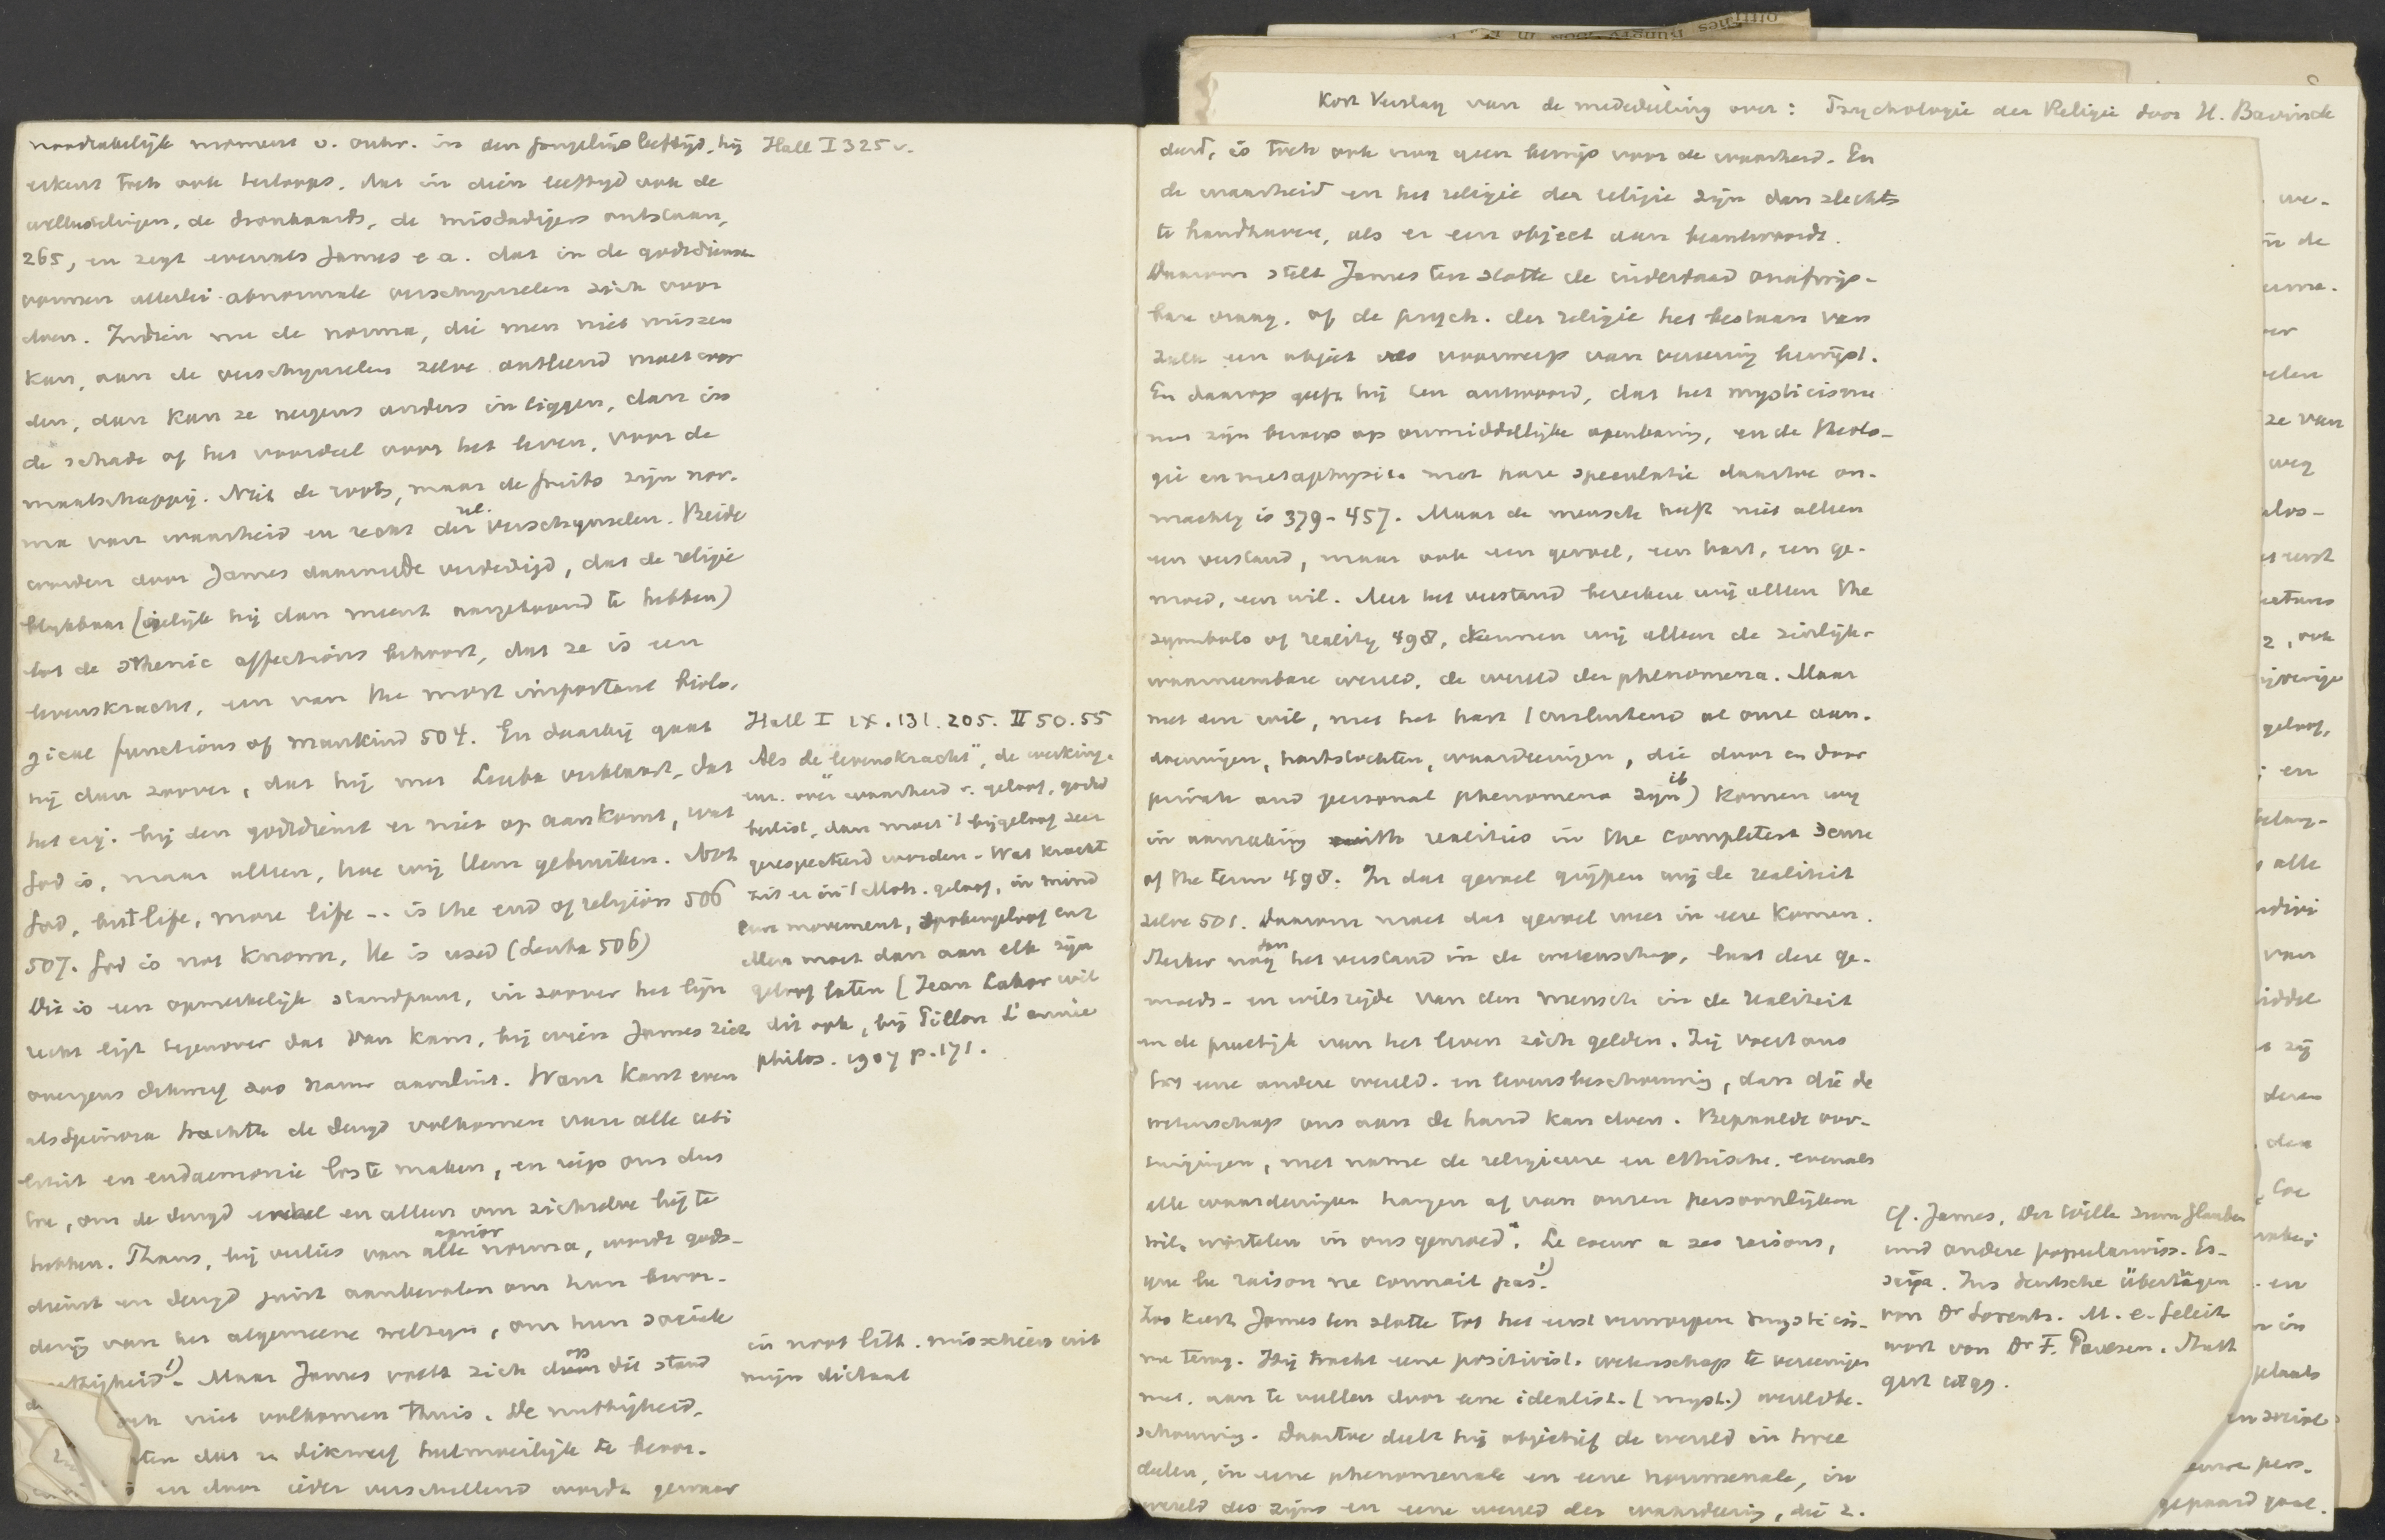 noodzakelijk moment v. ontw. in den jongelingsleeftijd, hij
erkent toch ook terloops, dat in dien leeftijd ook de
wellustelingen, de dronkaards, de misdadigers ontstaan,
265, en zegt evenals James e a. dat in de godsdienst
vormen allerlei abnormale verschijnselen zich voor
doen. Indien nu de norma, die men niet missen
kan, aan de verschijnselen zelve ontleend moet wor
den, dan kan ze nergens anders in liggen, dan in
de schade of het voordeel voor het leven, voor de
maatschappij. Niet de roots, maar de fruits zijn nor-
ma van waarheid en recht der rel. verschijnselen. Beide
worden door James daarmede verdedigd, dat de religie
blijkbaar (gelijk hij dan meent aangetoond te hebben)
tot de sthenic affections behoort, dat ze is een
levenskracht, een van the most important biolo-
gical functions of mankind 504. En daarbij gaat
hij dan zoover, dat hij met Leuba verklaart, dat
het eig. bij den godsdienst er niet op aankomt, wat
God is, maar alleen, hoe wij Hem gebruiken. Not
God, but life, more life -- is the end of religion 506
507. God is not known, He is used (Leuba 506)
Dit is een opmerkelijk standpunt, in zoover het lijn
recht ligt tegenover dat van Kant, bij wien James zich
overigens dikwerf aansluit. Want Kant even
als Spinoza trachtte de deugd volkomen van alle uti
liteit en eudaemonie los te maken, en riep ons dus
toe, om de deugd enkel en alleen om zichzelve lief te
hebben. Thans, bij verlies van alle aprior norma, wordt gods-
dienst en deugd juist aanbevolen om hun bevor-
dering van het algemeene welzijn, om hun sociale
nuttigheid 1). Maar James voelt zich op dit stand
ook niet volkomen thuis. De nuttigheid,
ten dat z. dikwerf heel moeilijk te beoor-
en door ieder verschillend wordt gewaar
Hall I 325 v.
Hall I IX. 131. 205. II 50. 55
Als de "levenskracht", de werking.
over waarheid v. geloof, godsd
beslist, dan moet 't bijgeloof zeer
gerespecteerd worden. Wat kracht
zit er in 't Moh. geloof, in mind
cure movement, spokengeloof enz
Men moet dan aan elk zijn
geloof laten [Jean Lahor wil
dit ook, bij Pillon L'année
philos. 1907 p. 171.
in noot litt. misschien uit
mijn dictaat
Kort Verslag van de mededeeling over: Psychologie der Religie door H. Bavinck
deerd, is toch ook nog geen bewijs voor de waarheid. En
de waarheid en het religie der religie zijn dan slechts
te handhaven, als er een object aan beantwoordt.
Daarom stelt James ten slotte de inderdaad onafwijs-
bare vraag, of de psych. der religie het bestaan van
zulk een object als voorwerp van vereering bewijst.
En daarop geeft hij ten antwoord, dat het mysticisme
met zijn beroep op onmiddellijke openbaring, en de theolo-
gie en metaphysica met hare speculatie daartoe on-
machtig is 379-457. Maar de mensch heeft niet alleen
een verstand, maar ook een gevoel, een hart, een ge-
moed, een wil. Met het verstand bereiken wij alleen the
symbols of reality 498, kennen wij alleen de zinlijk-
waarneembare wereld, de wereld der phenomena. Maar
met den wil, met het hart (omsluitend al onze aan-
doeningen, hartstochten, waardeeringen, die door en door
private and personal phenomena zijn ib) komen wij
in aanraking with realities in the completest sense
of the term 498. In dat gevoel grijpen wij de realiteit
zelve 501. Daarom moet dat gevoel weer in eere komen.
Sterker nog dan het verstand in de wetenschap, laat deze ge-
moeds- en wilszijde van den mensch in de realiteit
in de practijk van het leven zich gelden. Zij voert ons
tot eene andere wereld- en levensbeschouwing, dan die de
wetenschap ons aan de hand kan doen. Bepaalde over-
tuigingen, met name de religieuze en ethische, evenals
alle waardeeringen hangen af van onzen persoonlijken
wil, wortelen in ons gemoed. Le coeur a ses raisons,
que la raison ne connait pas. 1)
Zoo keert James ten slotte tot het eerst verworpen mysticis-
me terug. Hij tracht eene positivist. wetenschap te vereenigen
met, aan te vullen door eene idealist. (myst.) wereldbe-
schouwing. Daartoe deelt hij objectief de wereld in twee
deelen, in eene phenomenale en eene noumenale, in
wereld des zijns en eene wereld der waardeering, die z.
Cf. James, Der Wille zum Glauben
und andere popularwiss. Es-
says. Ins deutsche übertragen
von Dr Lorentz. M. e. Geleit
wort von Dr F. Paulsen. Stutt
gart 1899.
we-
in de
ze van
weg
alos-
2, ook
geloof,
en
belang-
alle
van
middel
zij
deren
der
en
in
plaats
en sociale
eenen pers-
gepaard gaat.